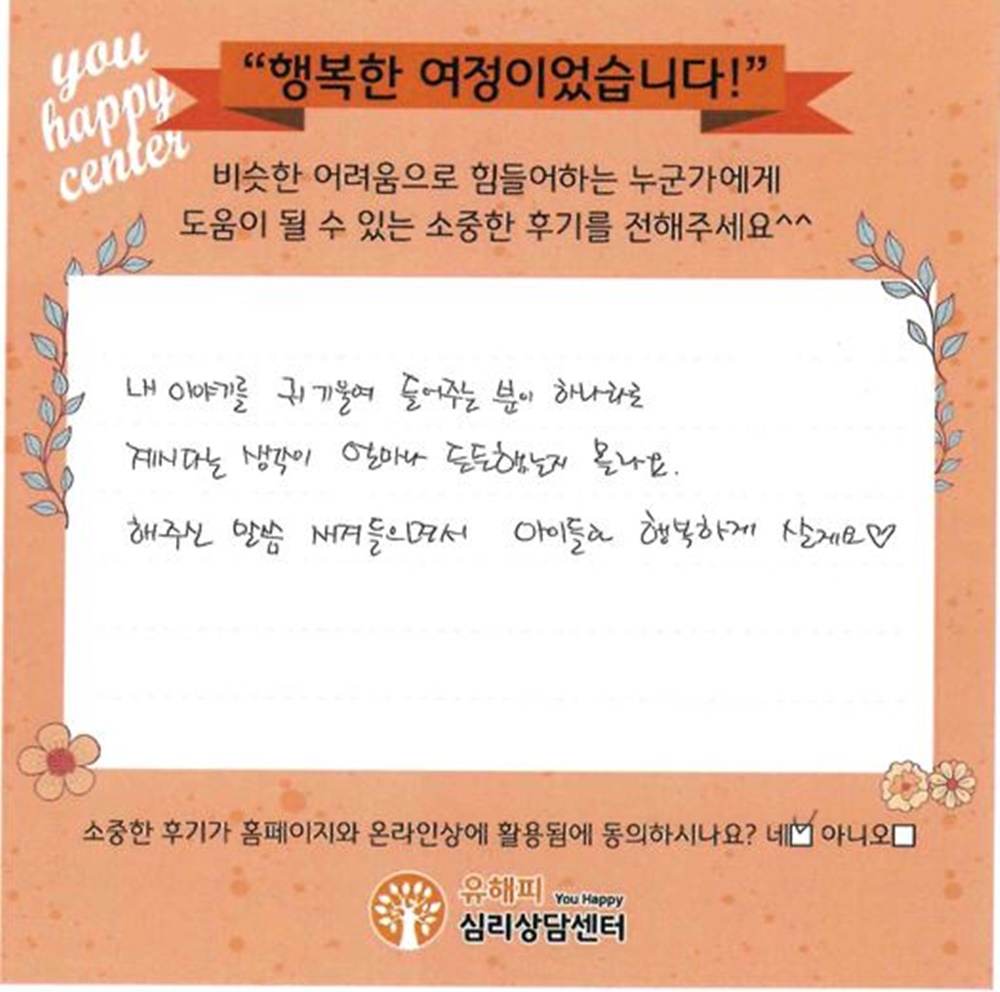 you
happy
center
“행복한 여정이었습니다!”
비슷한 어려움으로 힘들어하는 누군가에게
도움이 될 수 있는 소중한 후기를 전해주세요^^
내 이야기를 귀 기울여 들어주는 분이 하나라도
계시다는 생각이 얼마나 든든했는지 몰라요.
해주신 말씀 새겨들으면서 아이들과 행복하게 살게요♡
소중한 후기가 홈페이지와 온라인상에 활용됨에 동의하시나요? 네☑ 아니오☐
유해피 You Happy
심리상담센터